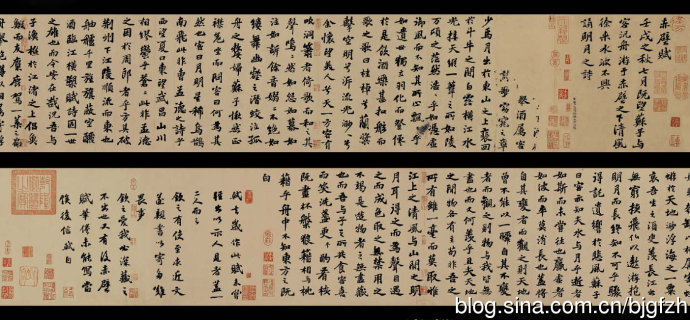 赤壁賦
壬戌之秋七月既望蘇子與
客汎舟游于赤壁之下清風
徐來水波不興
舉酒屬客
誦明月之詩
歌窈窕之章
少焉月出於東山之上裴回
於斗牛之間白露橫江水
光接天縱一葦之所如陵
萬頃之茫然浩浩乎如馮虛
御風而不知其所止飄飄乎
如遺世獨立羽化而登僊
於是飲酒樂甚扣舷而
歌之歌曰桂棹兮蘭槳
擊空明兮泝流光渺渺兮
余懷望美人兮天一方客有
吹洞簫者倚歌而和之其
聲嗚嗚然如怨如慕如
泣如訴餘音嫋嫋不絕如
縷舞幽壑之潛蛟泣孤
舟之嫠婦蘇子愀然正
襟危坐而問客曰何為其
然也客曰月明星稀烏鵲
南飛此非曹孟德之詩乎
西望夏口東望武昌山川
相繆鬱乎蒼蒼此非孟德
之困於周郎者乎方其破
荊州下江陵順流而東也
舳艫千里旌旗蔽空釃
酒臨江橫槊賦詩固一世
之雄也而今安在哉況吾與
子漁樵於江渚之上侶魚
鰕而友麋鹿駕一葉之扁
於天地渺浮海之一粟
哀吾生之須臾羨長江之
無窮挾飛僊以遨遊抱
明月而長終知不可乎驟
得託遺響於悲風蘇子
曰客亦知夫水與月乎逝者
如斯而未嘗往也贏虛者
如彼而卒莫消長也蓋將
自其變者而觀之則天地
曾不能以一瞬自其不變
者而觀之則物與我皆無
盡也而又何羨乎且夫天地
之間物各有主苟非吾之
所有雖一毫而莫取惟
江上之清風與山間之明
月耳得之而為聲目遇
之而成色取之無禁用之
不竭是造物者之無盡藏
也而吾與子之所共食客喜
而笑洗盞更酌肴核
既盡杯盤狼籍相與枕
藉乎舟中不知東方之既
白
軾去歲作此賦未嘗
輕出以示人見者蓋一
二人而已
欽之有使至求近文
遂親書以寄多難
畏事
欽之愛我必深藏之
不出也又有後赤壁
賦筆倦未能寫當
俟後信軾白
blog.sina.com.cn/bjgfzh